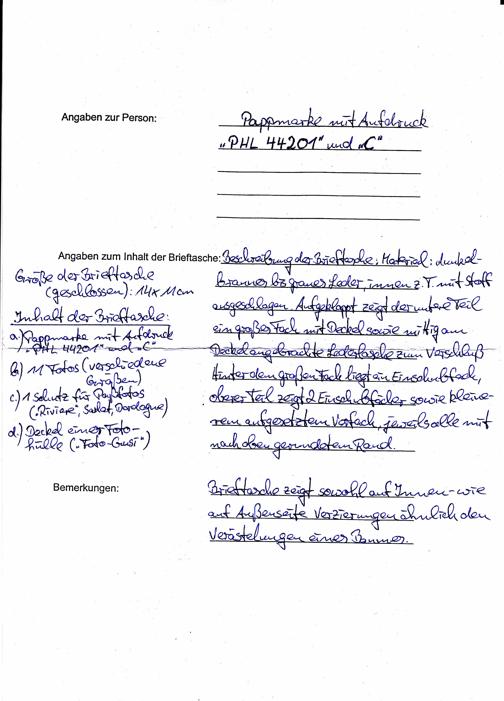 Angaben zur Person:
Pappmarke mit Aufdruck
„PHL 44201" und „C"
Angaben zum Inhalt der Brieftasche:
Beschreibung der Brieftasche: Material: dunkel-
braunes bis graues Leder, innen z.T. mit Stoff
ausgeschlagen. Aufgeklappt zeigt der untere Teil
ein großes Fach mit Deckel sowie mittig am
Deckel angebrachte Lederlasche zum Verschluß
Hinter dem großen Fach liegt ein Einschubfach,
oberer Teil zeigt 2 Einschubfächer sowie kleine-
rem aufgesetztem Vorfach, jeweils alle mit
nach oben gerundetem Rand.
Größe der Brieftasche
(geschlossen): 14 x 11 cm
Inhalt der Brieftasche:
a) Pappmarke mit Aufdruck
„PHL 44201" und „C"
b) 11 Fotos (verschiedene
Größen)
c) 1 Schutz für Paßfotos
("Riviere", Sarlat, Dordogne)
d.) Deckel einer Foto-
hülle ("Foto-Gusi")
Bemerkungen:
Brieftasche zeigt sowohl auf Innen- wie
auf Außenseite Verzierungen ähnlich den
Verästelungen eines Baumes.